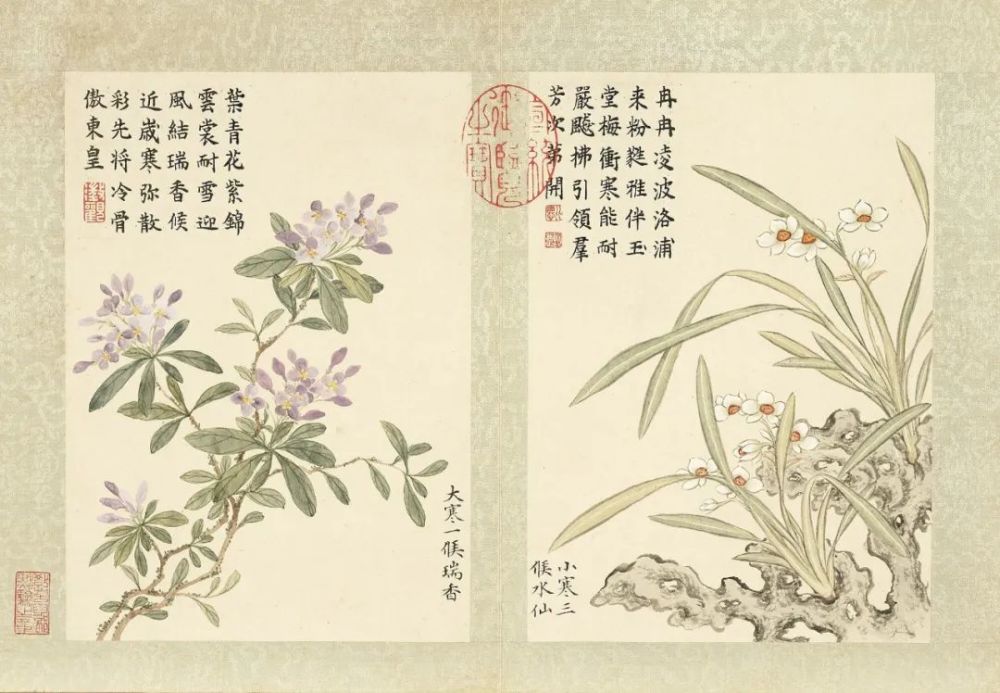 冉冉凌波洛浦
来粉雅伴玉
堂梅衝寒能耐
嚴飈拂引領羣
芳次苐開
小寒三
候水仙
宣統
御覽
之寶
葉青花紫錦
雲裳耐雪迎
風結瑞香候
近嵗寒弥散
彩先将冷骨
傲東皇
大寒一候瑞香